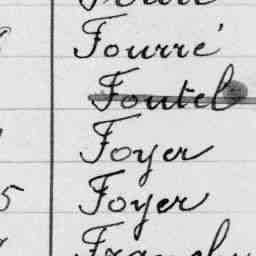 Fourré
Foutel
Foyer
5 Foyer